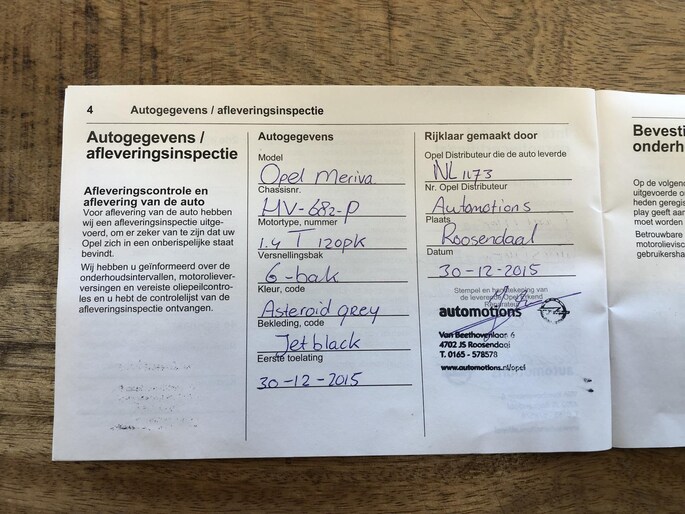 4 Autogegevens / afleveringsinspectie
Autogegevens /
afleveringsinspectie
Afleveringscontrole en
aflevering van de auto
Voor aflevering van de auto hebben
wij een afleveringsinspectie uitge-
voerd, om er zeker van te zijn dat uw
Opel zich in een onberispelijke staat
bevindt.
Wij hebben u geïnformeerd over de
onderhoudsintervallen, motoroliever-
versingen en vereiste oliepeilcontro-
les en u hebt de controlelijst van de
afleveringsinspectie ontvangen.
Autogegevens
Model
Opel Meriva
Chassisnr.
HV-682-P
Motortype, nummer
1.4 T 120pk
Versnellingsbak
6-bak
Kleur, code
Asteroid grey
Bekleding, code
Jetblack
Eerste toelating
30-12-2015
Rijklaar gemaakt door
Opel Distributeur die de auto leverde
NL 1173
Nr. Opel Distributeur
Automotions
Plaats
Roosendaal
Datum
30-12-2015
Stempel en handtekening van
de leverende Opel Erkend
Reparateur
automotions
Van Beethovenlaan 6
4702 JS Roosendaal
T. 0165 - 578578
www.automotions.nl/opel
Bevesti
onderh
Op de volgend
uitgevoerde on
heden geregis
play geeft aan
moet worden
Betrouwbare
motorolievisc
gebruikershar